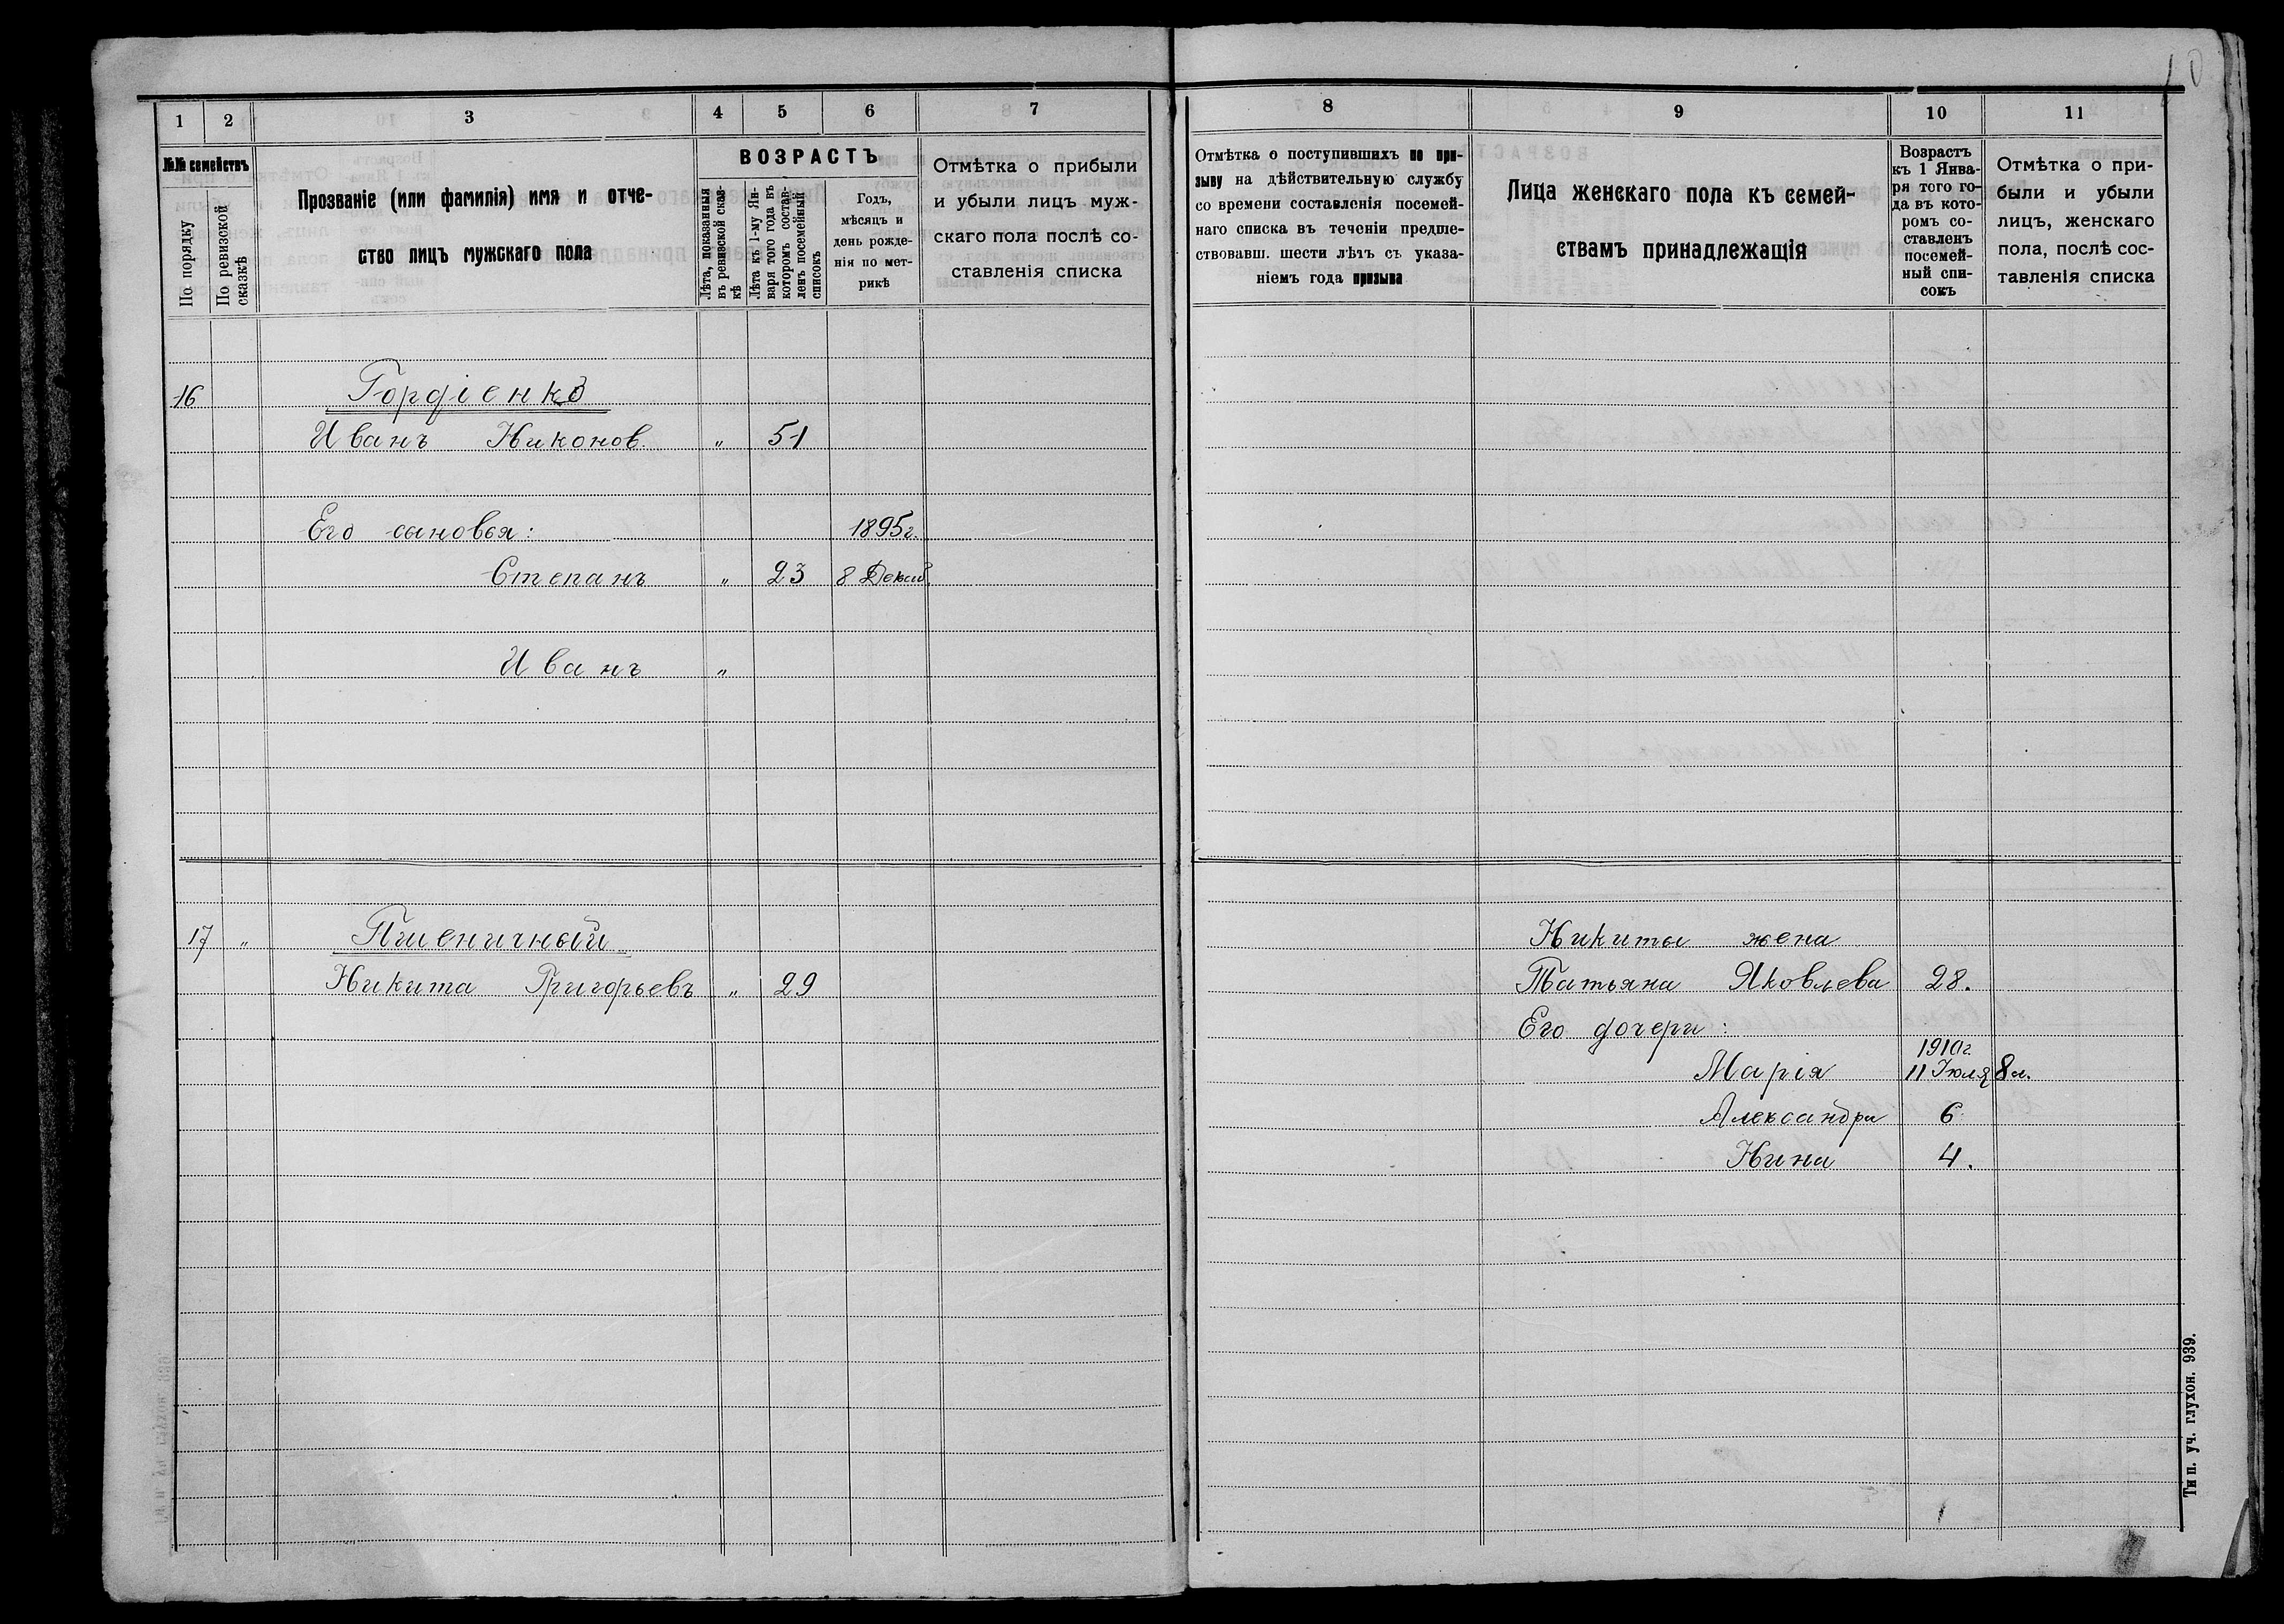 10
1 2 3 4 5 6 7
№№ семействъ
По порядку
По ревизской сказкѣ
Прозваніе (или фамилія) имя и отче-
ство лицъ мужскаго пола
ВОЗРАСТЪ
Лѣта, показанныя
въ ревизской сказ-
кѣ
Лѣта къ 1-му Ян-
варя того года въ
которомъ состав-
ленъ посемейный
списокъ
Годъ,
мѣсяцъ и
день рожде-
нія по мет-
рикѣ
Отмѣтка о прибыли
и убыли лицъ муж-
скаго пола послѣ со-
ставленія списка
16 Гордіенко
Иванъ Никонов. " 51
Его сыновья: 1895г.
Степанъ " 23 8 Декаб.
Иванъ "
17 " Пшеничный
Никита Григорьевъ " 29
8 9 10 11
Отмѣтка о поступившихъ по при-
зыву на дѣйствительную службу
со времени составленія посемей-
наго списка въ теченіи предше-
ствовавш. шести лѣтъ съ указа-
ніемъ года призыва
Лица женскаго пола къ семей-
ствамъ принадлежащія
Возрастъ
къ 1 Янва-
ря того го-
да въ кото-
ромъ со-
ставленъ
посемей-
ный спи-
сокъ
Отмѣтка о при-
были и убыли
лицъ, женскаго
пола, послѣ сос-
тавленія списка
Никиты жена
Татьяна Яковлева 28.
Его дочери:
1910г.
Марія 11 Іюля 8 л.
Александра 6
Нина 4.
Тип. уч. глухон. 939.